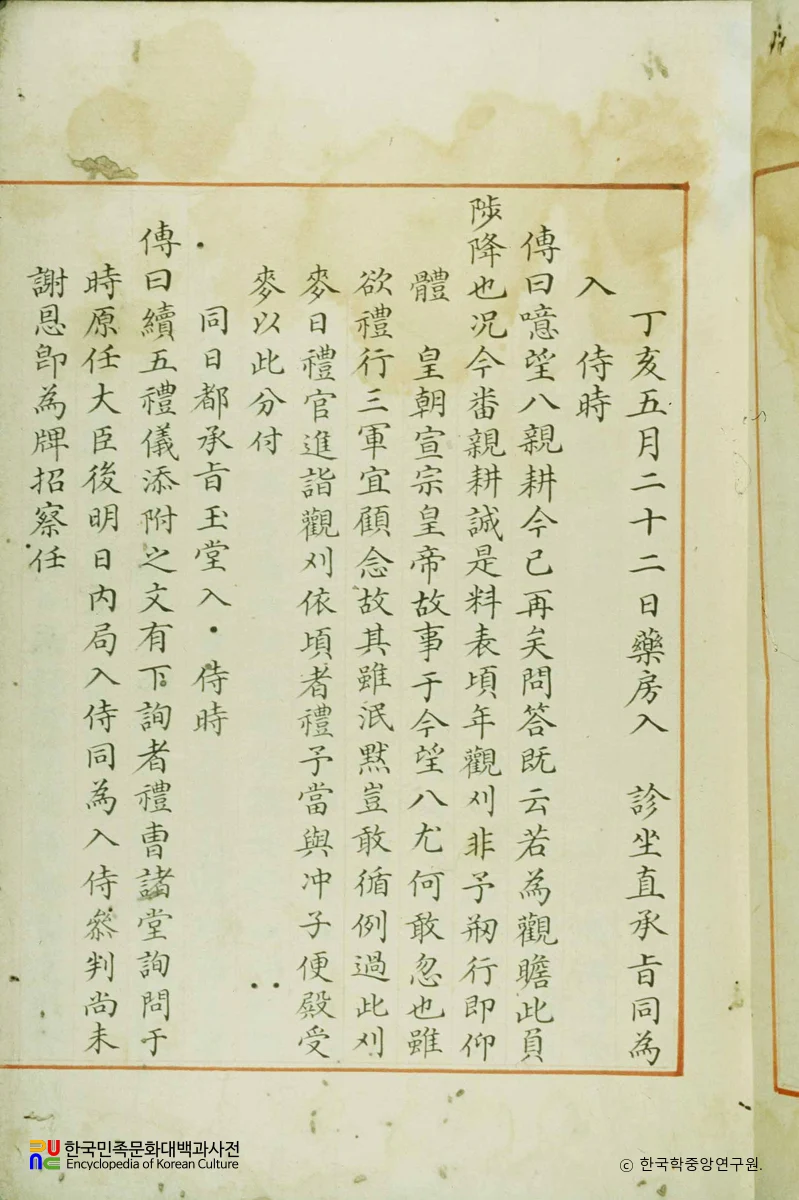 丁亥五月二十二日藥房入 診坐直承旨同為
入 侍時
傳曰噫望八親耕今已再矣問答旣云若為觀瞻此負
陟降也况今番親耕誠是料表頃年觀刈非予刱行卽仰
體 皇朝宣宗皇帝故事于今望八尤何敢忽也雖
欲禮行三軍宜顧念故其雖泯默豈敢循例過此刈
麥日禮官進詣觀刈依頃者禮予當與冲子便殿受
麥以此分付
同日都承旨玉堂入 侍時
傳曰續五禮儀添附之文有下詢者禮曹諸堂詢問于
時原任大臣後明日內局入侍同為入侍叅判尚未
謝恩卽為牌招察任
한국민족문화대백과사전
Encyclopedia of Korean Culture
© 한국학중앙연구원.